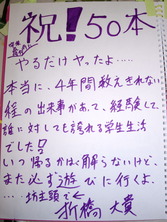 祝！50本
やるだけヤッたよ‥‥
本当に、4年間数えきれない
程の出来事があって、経験して、
誰に対しても誇れる学生生活
でした!!
いつ帰るかは解らないけど、
また必ず遊びに行くよ。
‥‥坊主頭で
折橋大貴